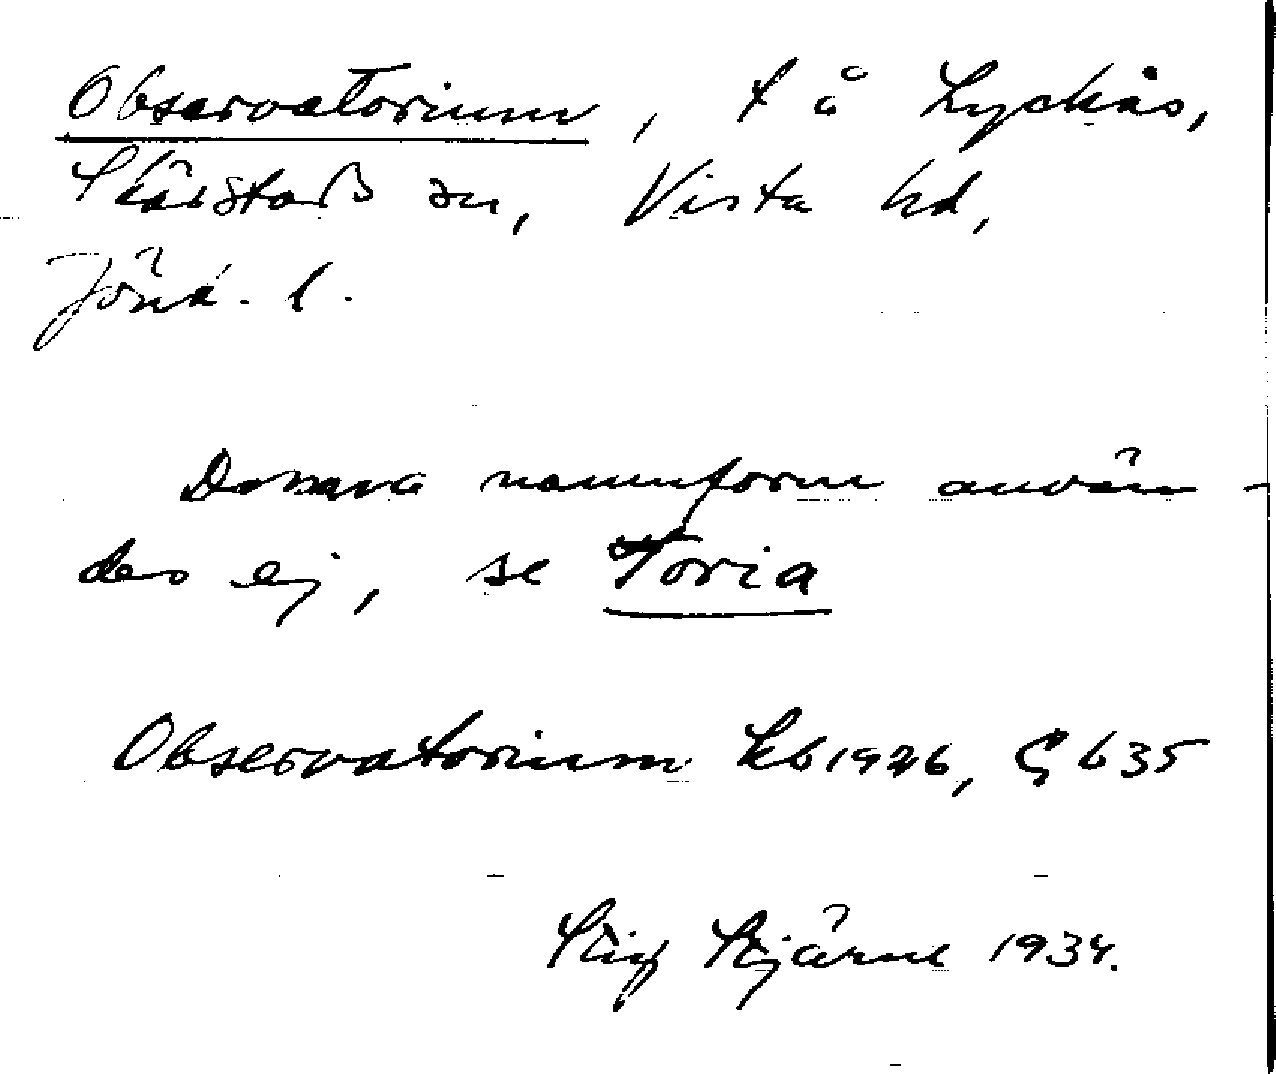 Observatorium, t å Lyckås,
Skärstads sn, Vista hd,
Jönk. l.
Denna namnform använ-
des ej, se Toria
Observatorium kb 1926, C b 35
Stig Stjärne 1934.